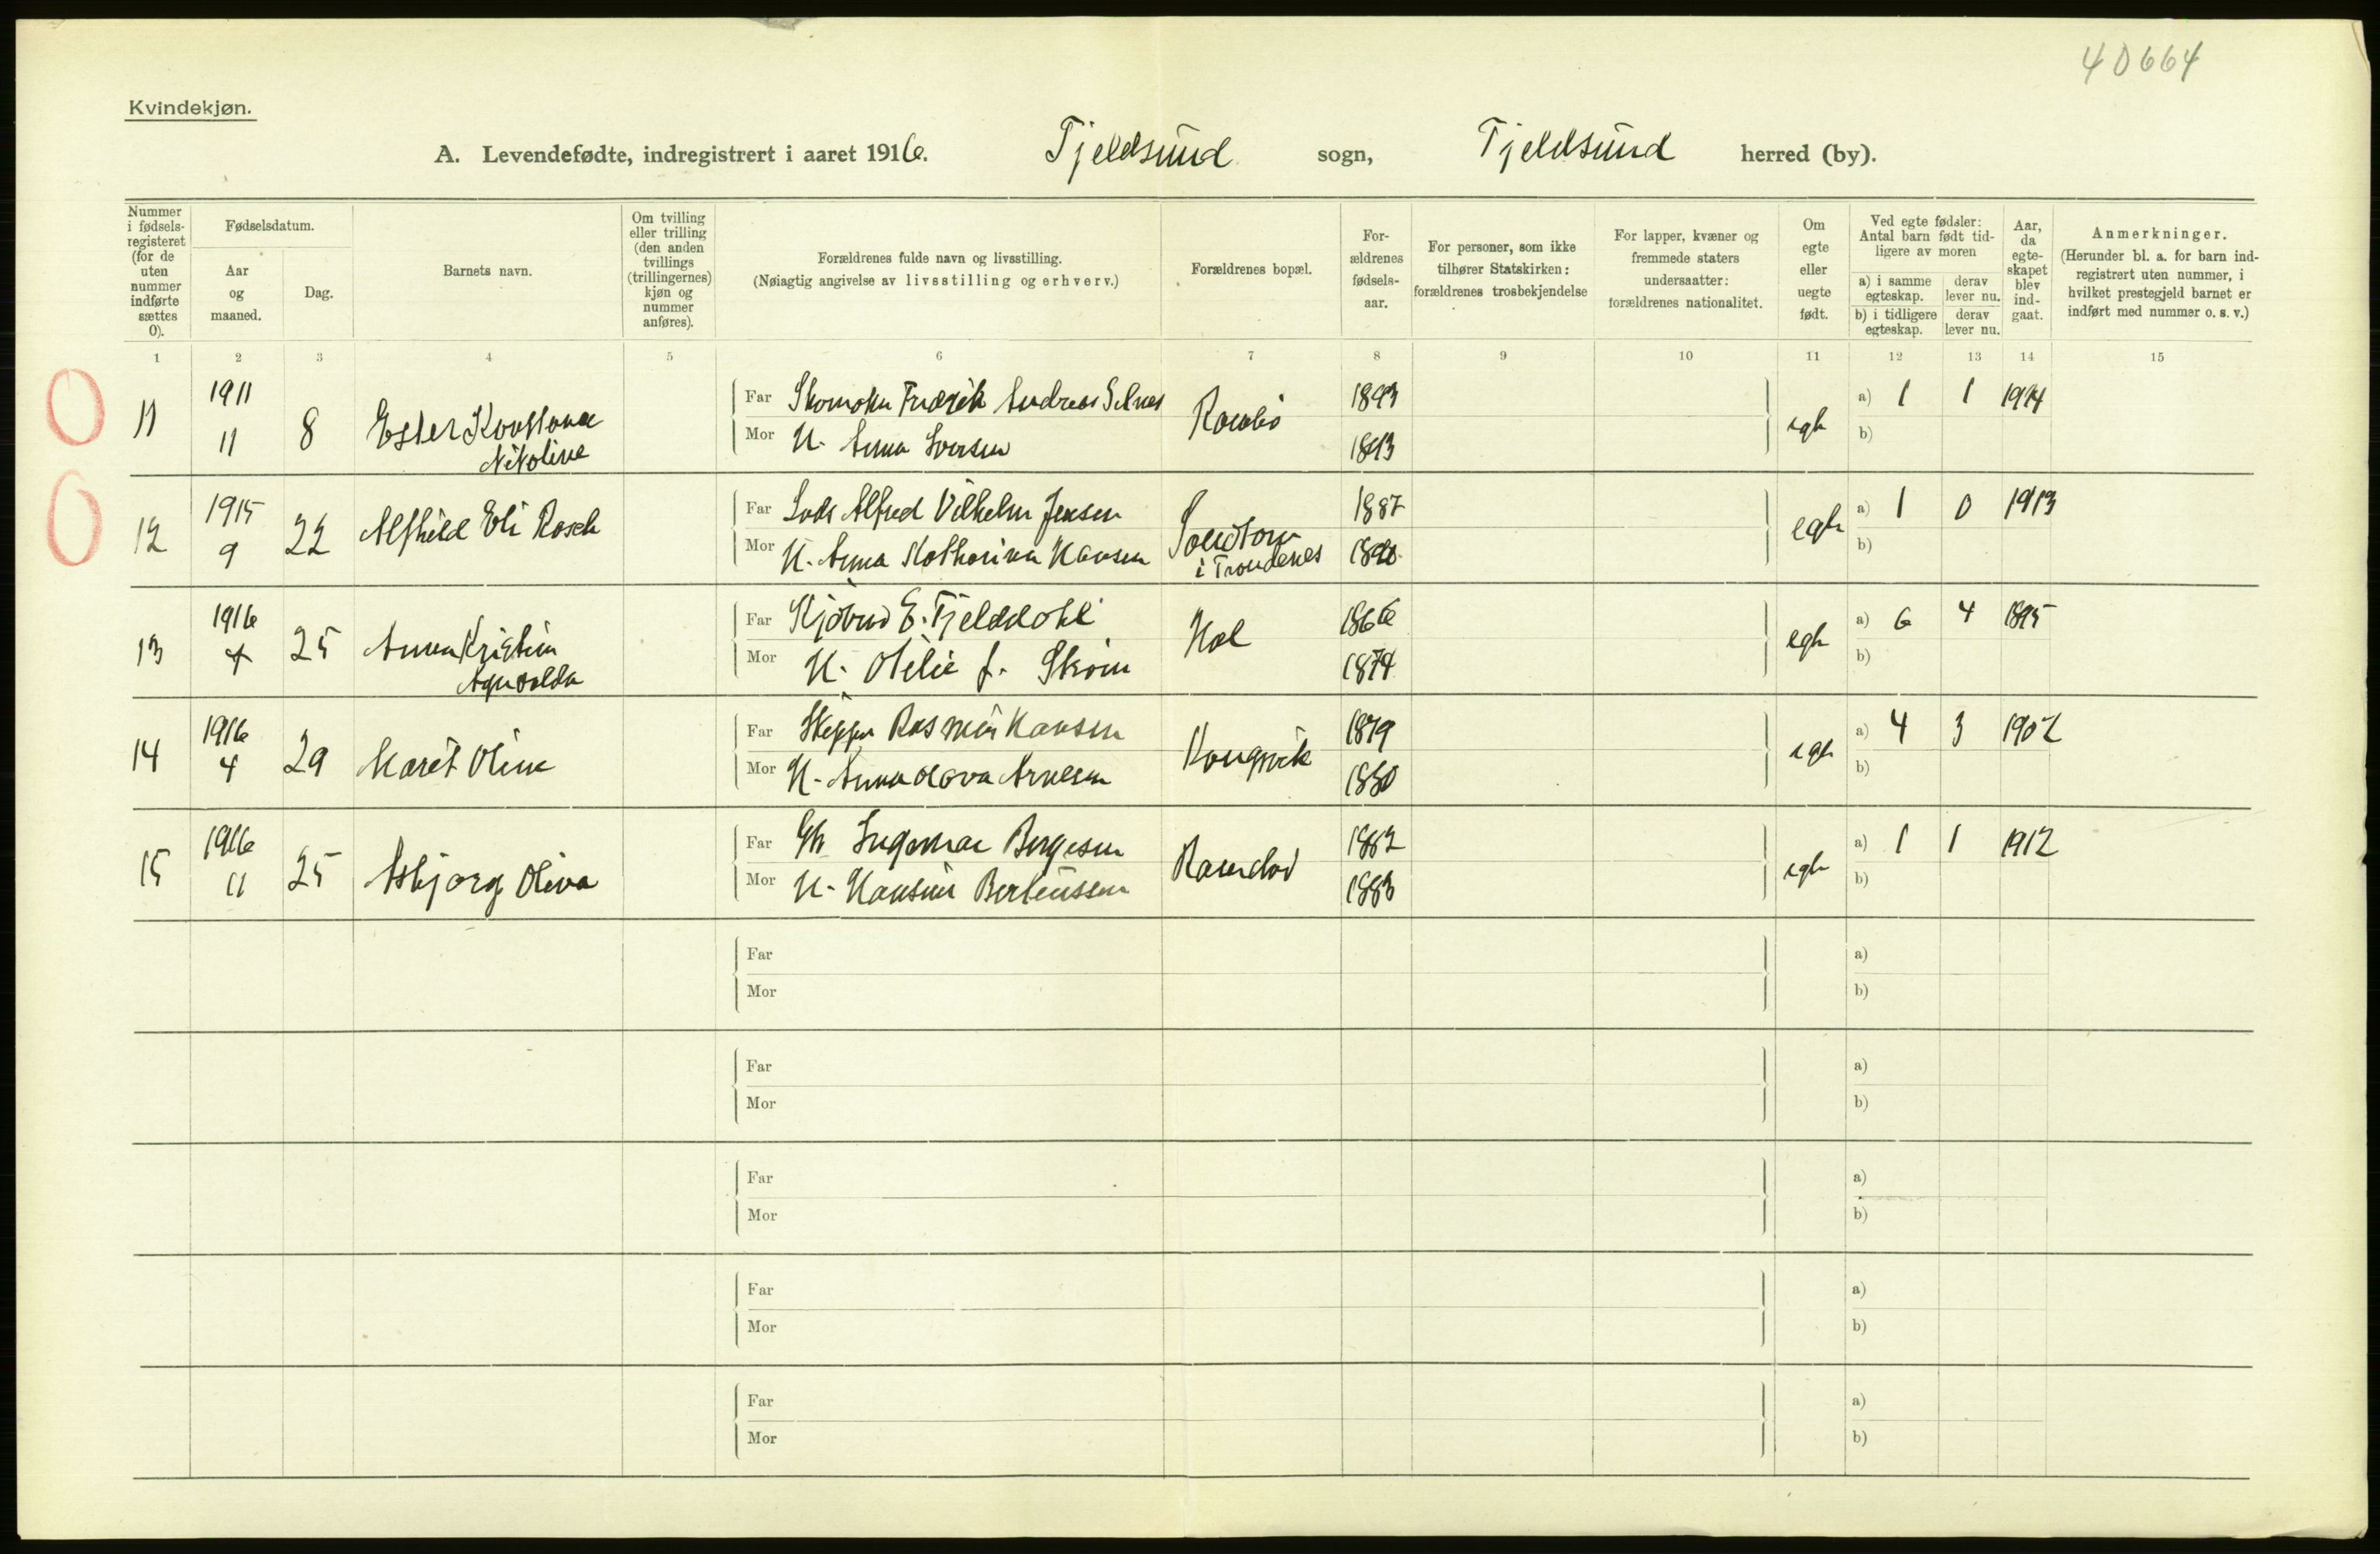 40664
Kvindekjøn.
A. Levendefødte, indregistrert i aaret 1916. Tjeldsund sogn, Tjeldsund herred (by).
Nummer i fødsels-registeret (for de uten nummer indførte sættes 0).
Fødselsdatum.
Aar og maaned.
Dag.
Barnets navn.
Om tvilling eller trilling (den anden tvillings (trillingernes) kjøn og nummer anføres).
Forældrenes fulde navn og livsstilling.
(Nøiagtig angivelse av livsstilling og erhverv.)
Forældrenes bopæl.
For-ældrenes fødsels-aar.
For personer, som ikke tilhører Statskirken: forældrenes trosbekjendelse
For lapper, kvæner og fremmede staters undersaatter: forældrenes nationalitet.
Om egte eller uegte født.
Ved egte fødsler: Antal barn født tid-ligere av moren
a) i samme egteskap.
derav lever nu.
b) i tidligere egteskap.
derav lever nu.
Aar, da egte-skapet blev ind-gaat.
Anmerkninger.
(Herunder bl. a. for barn ind-registrert uten nummer, i hvilket prestegjeld barnet er indført med nummer o. s. v.)
1 2 3 4 5 6 7 8 9 10 11 12 13 14 15
11 1911 11 8 Ester Nikoline
Far Fredrik Andreas Selnes 1893 egte a) 1 1 1914
Mor H. Anna Iversen 1893 b)
12 1915 9 22 Alfhild Eli Rosch
Far Alfred Vilhelm Jensen Sandtorv i Trondenes 1887 egte a) 1 0 1913
Mor H. Anna Katharina Hansen 1890 b)
13 1916 4 25 Anna Kristin
Far E. Tjelddahl Hol 1866 egte a) 6 4 1895
Mor H. Otelie J. Strøm 1874 b)
14 1916 4 29 Marit Oline
Far Skipper Rasmus Hansen Kongsvik 1879 egte a) 4 3 1902
Mor H. Anna Olava Arnesen 1880 b)
15 1916 11 25 Asbjørg Oliva
Far Ingemar Bergesen 1882 egte a) 1 1 1912
Mor H. Hansine Berteussen 1883 b)
Far a)
Mor b)
Far a)
Mor b)
Far a)
Mor b)
Far a)
Mor b)
Far a)
Mor b)